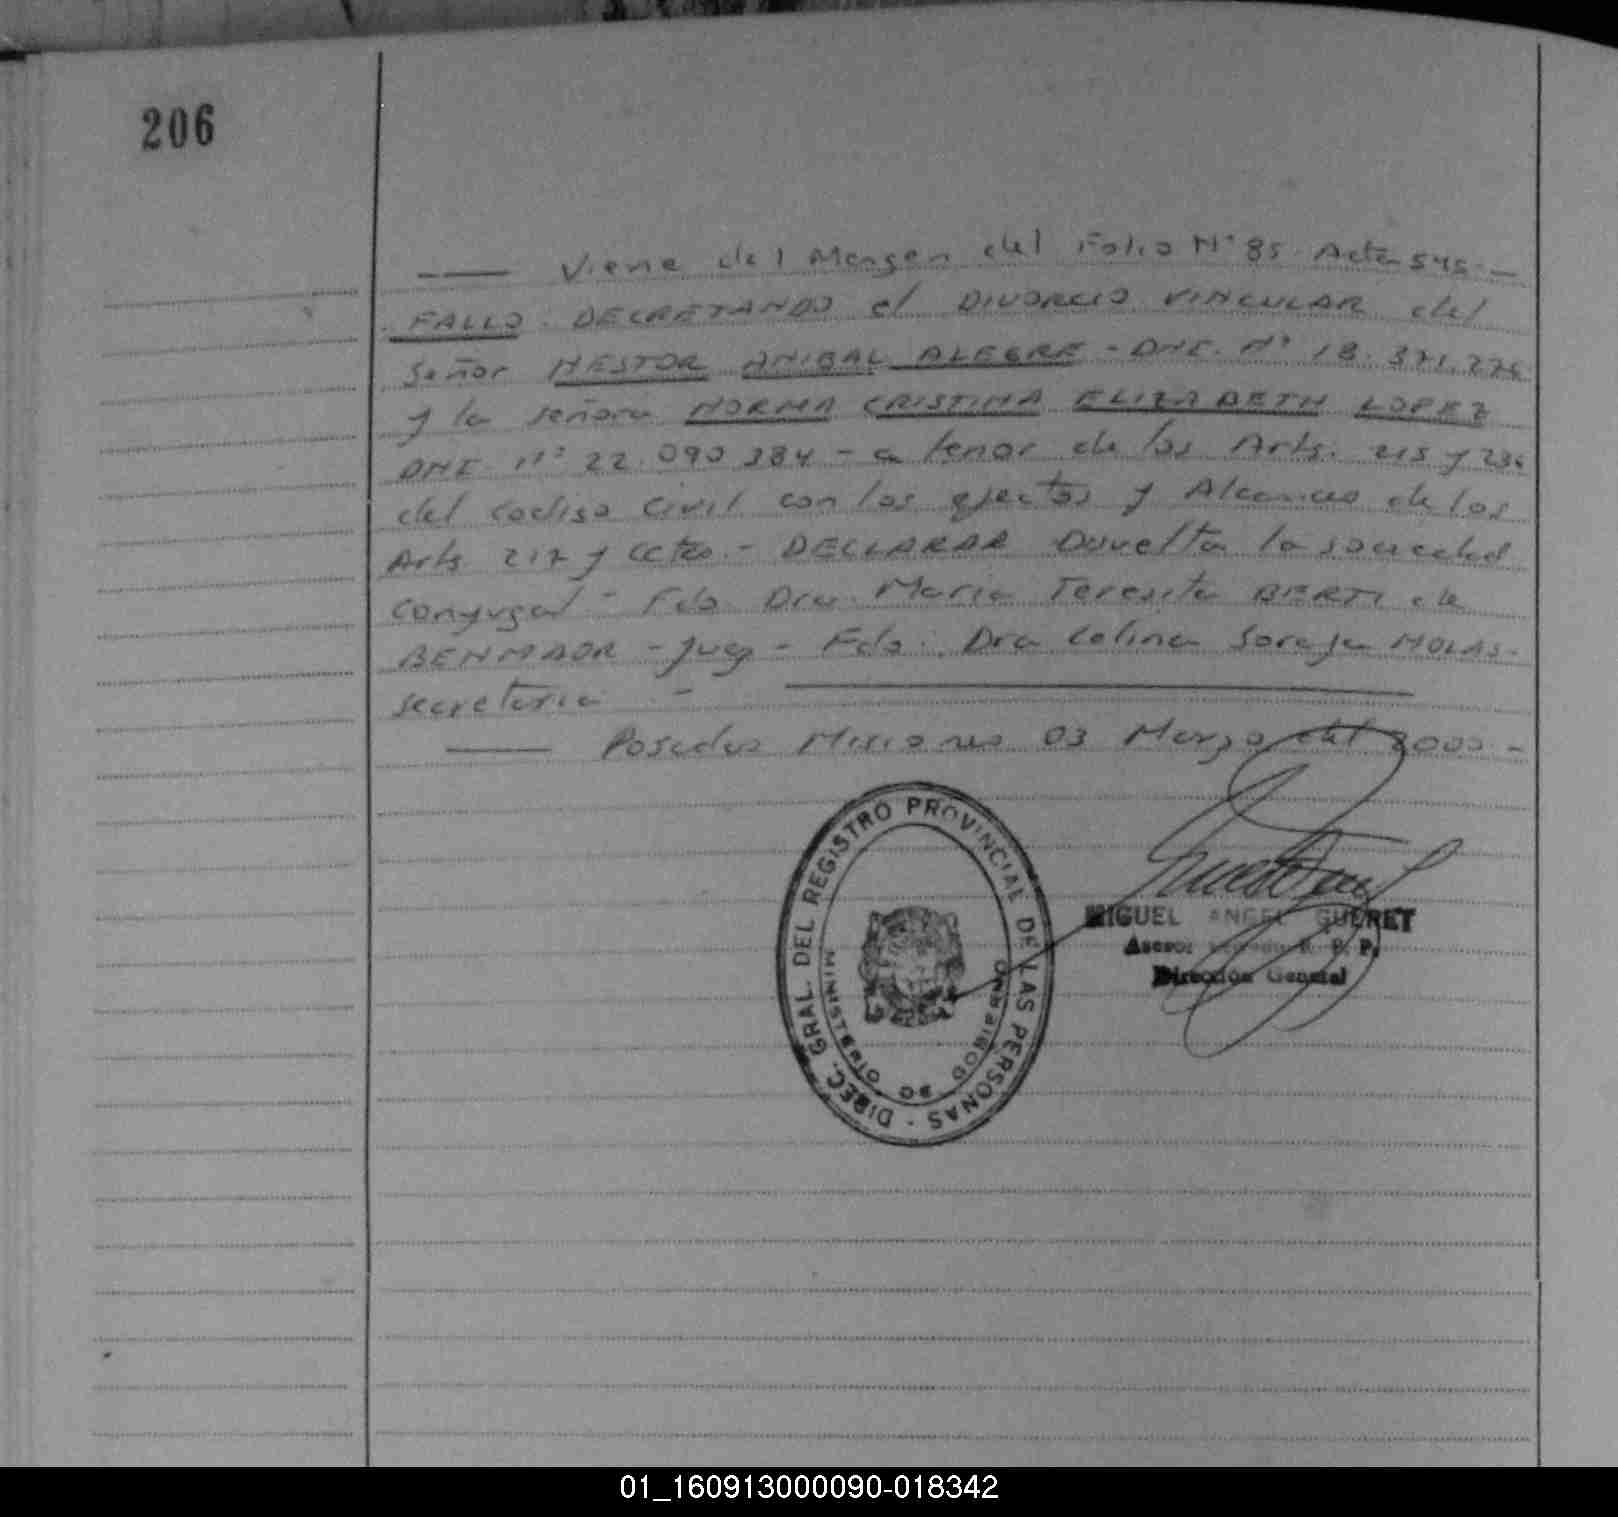 206
—— Viene del Margen del Folio N° 85. Acta 545.—
FALLO. DECRETANDO el DIVORCIO VINCULAR del
señor NESTOR ANIBAL ALEGRE - DNI. N° 18.371.276
y la señora NORMA CRISTINA ELIZABETH LOPEZ
DNI. N° 22.090.384 - a tenor de los Arts. 215 y 236
del Codigo Civil con los efectos y Alcances de los
Arts. 217 y cctes. - DECLARAR Disuelta la sociedad
conyugal - Fdo Dra. Maria Teresita BERTI de
BENMAOR - Juez - Fdo. Dra Celina Soraya MOLAS-
secretaria -
—— Posadas Misiones 03 Marzo del 2000 -
DIREC. GRAL. DEL REGISTRO PROVINCIAL DE LAS PERSONAS -
MINISTERIO DE GOBIERNO
MIGUEL ANGEL GUERET
Asesor R. P. P.
Dirección General
01_160913000090-018342